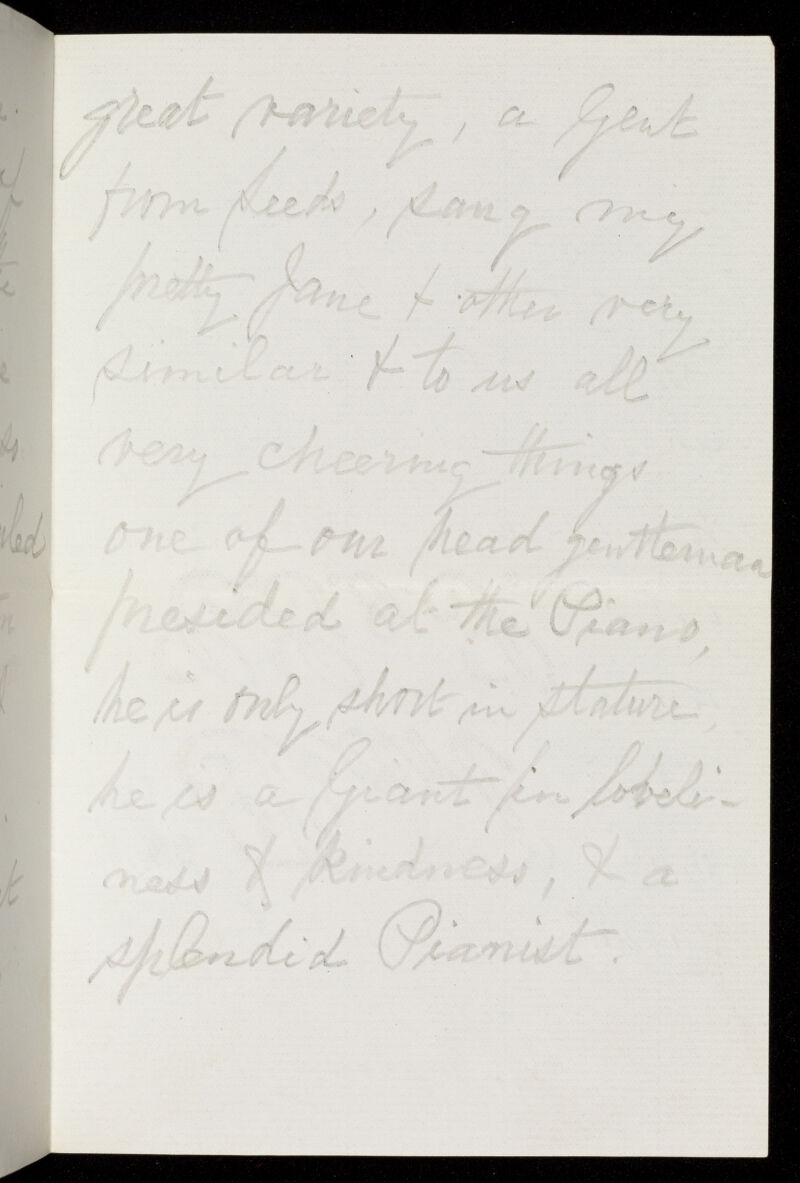 great variety, a Gent
from Leeds, sang my
pretty Jane & other very
similar & to us all
very cheering things
one of our head gentleman
presided at the Piano,
he is only short in stature,
he is a Giant in loveli-
ness & kindness, & a
splendid Pianist.